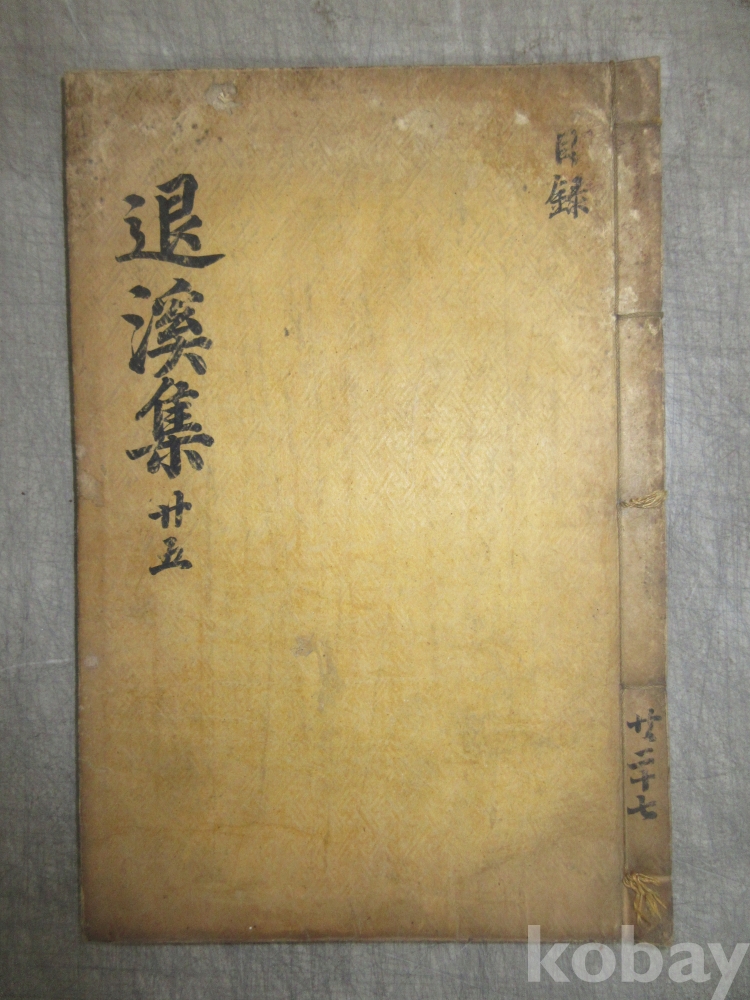 目錄
退溪集 廿五
共二十七
kobay